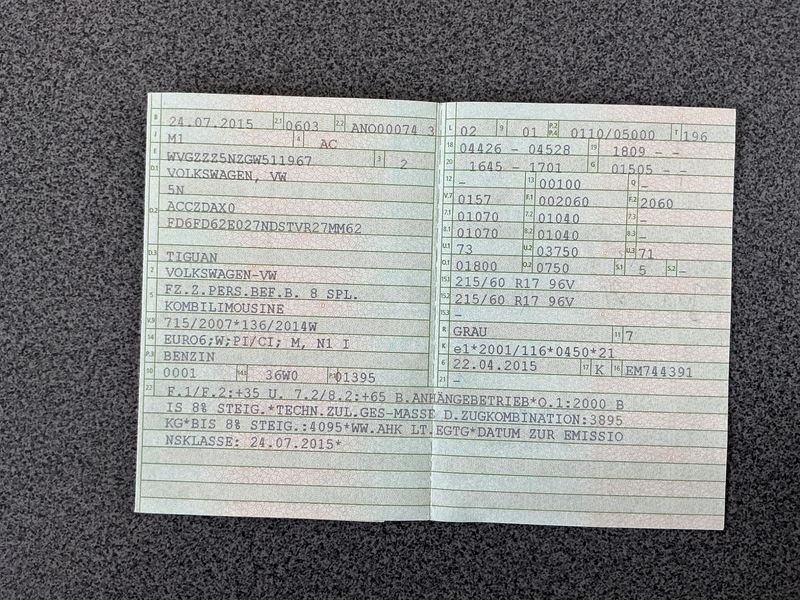 B 24.07.2015 2.1 0603 2.2 ANO00074 3
J M1 4 AC
E WVGZZZ5NZGW511967 3 2
D.1 VOLKSWAGEN, VW
5N
D.2 ACCZDAX0
FD6FD62E027NDSTVR27MM62
D.3 TIGUAN
2 VOLKSWAGEN-VW
5 FZ.Z.PERS.BEF.B. 8 SPL.
KOMBILIMOUSINE
V.9 715/2007*136/2014W
14 EURO6;W;PI/CI; M, N1 I
P.3 BENZIN
10 0001 14.1 36W0 P.1 01395
L 02 9 01 P.2 P.4 0110/05000 T 196
18 04426 - 04528 19 1809 - -
20 1645 - 1701 G 01505 - -
12 - 13 00100 Q -
V.7 0157 F.1 002060 F.2 2060
7.1 01070 7.2 01040 7.3 -
8.1 01070 8.2 01040 8.3 -
U.1 73 U.2 03750 U.3 71
O.1 01800 O.2 0750 S.1 5 S.2 -
15.1 215/60 R17 96V
15.2 215/60 R17 96V
15.3 -
R GRAU 11 7
K e1*2001/116*0450*21
6 22.04.2015 17 K 16 EM744391
21 -
22 F.1/F.2:+35 U. 7.2/8.2:+65 B.ANHÄNGEBETRIEB*O.1:2000 B
IS 8% STEIG.*TECHN.ZUL.GES-MASSE D.ZUGKOMBINATION:3895
KG*BIS 8% STEIG.:4095*WW.AHK LT.EGTG*DATUM ZUR EMISSIO
NSKLASSE: 24.07.2015*